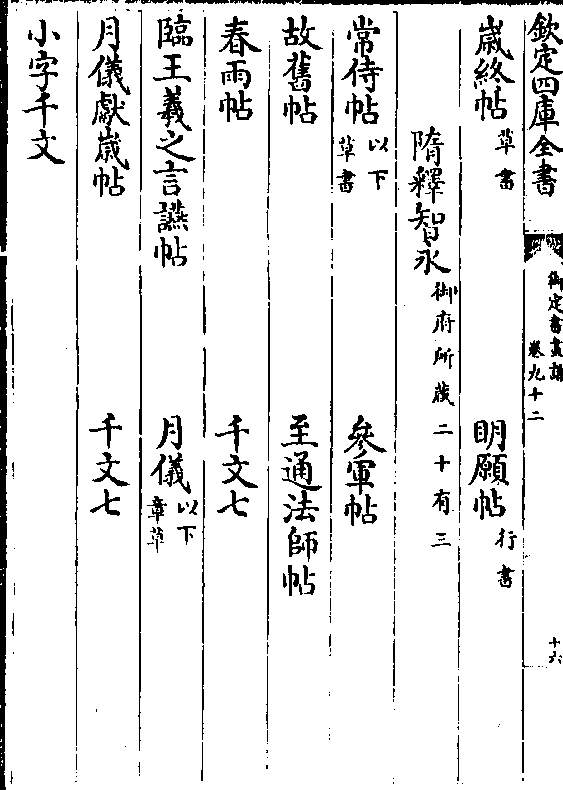 欽定四庫全書
御定書畫譜
卷九十二
十六
歲終帖草書 明願帖行書
隋釋智永御府所藏二十有三
常侍帖以下草書 參軍帖
故舊帖 至通法師帖
春雨帖 千文七
臨王羲之言讌帖 月儀以下章草
月儀獻歲帖 千文七
小字千文